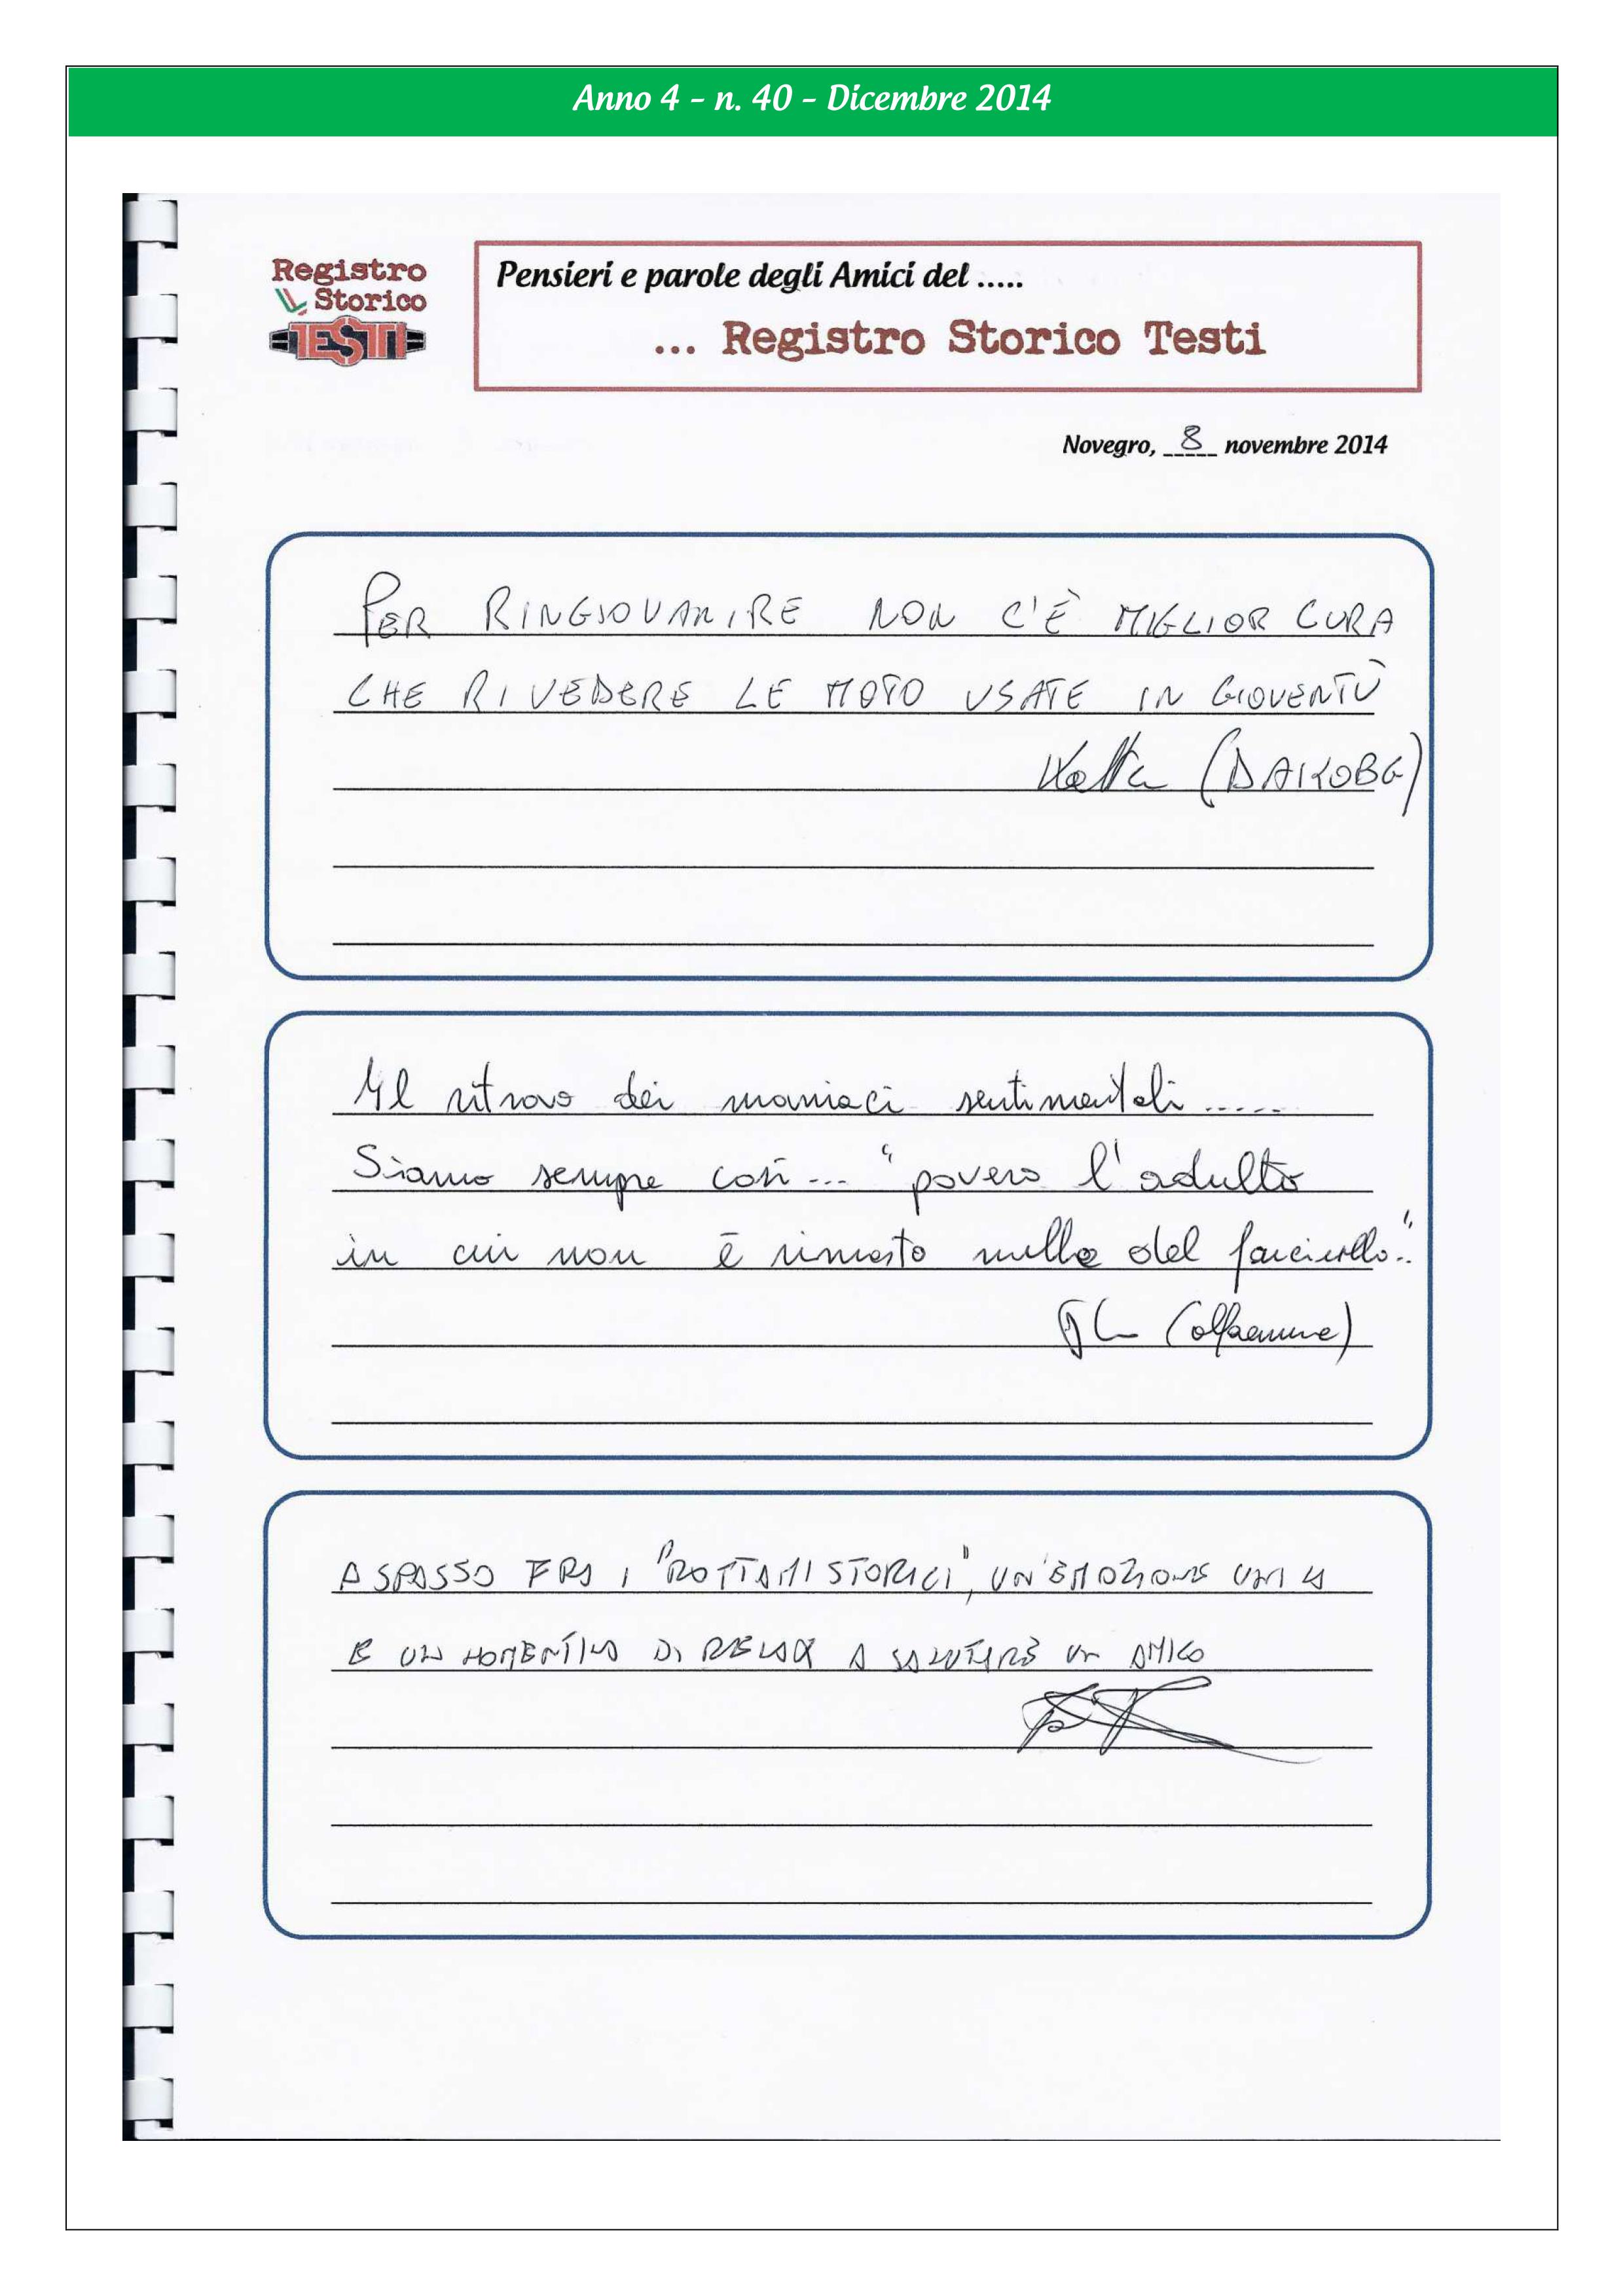 Anno 4 – n. 40 – Dicembre 2014
Registro
Storico
TESTI
Pensieri e parole degli Amici del .....
... Registro Storico Testi
Novegro, 8 novembre 2014
PER RINGIOVANIRE NON C'È MIGLIOR CURA
CHE RIVEDERE LE MOTO USATE IN GIOVENTÙ
(DAKOBG)
Il ritrovo dei maniaci sentimentali .....
Siamo sempre così ... "povero l'adulto
in cui non è rimasto nulla del fanciullo.."
A SPASSO FRA I "ROTTAMI STORICI", UN'EMOZIONE UNICA
E UN MOMENTINO DI RELAX A SALUTARE UN AMICO